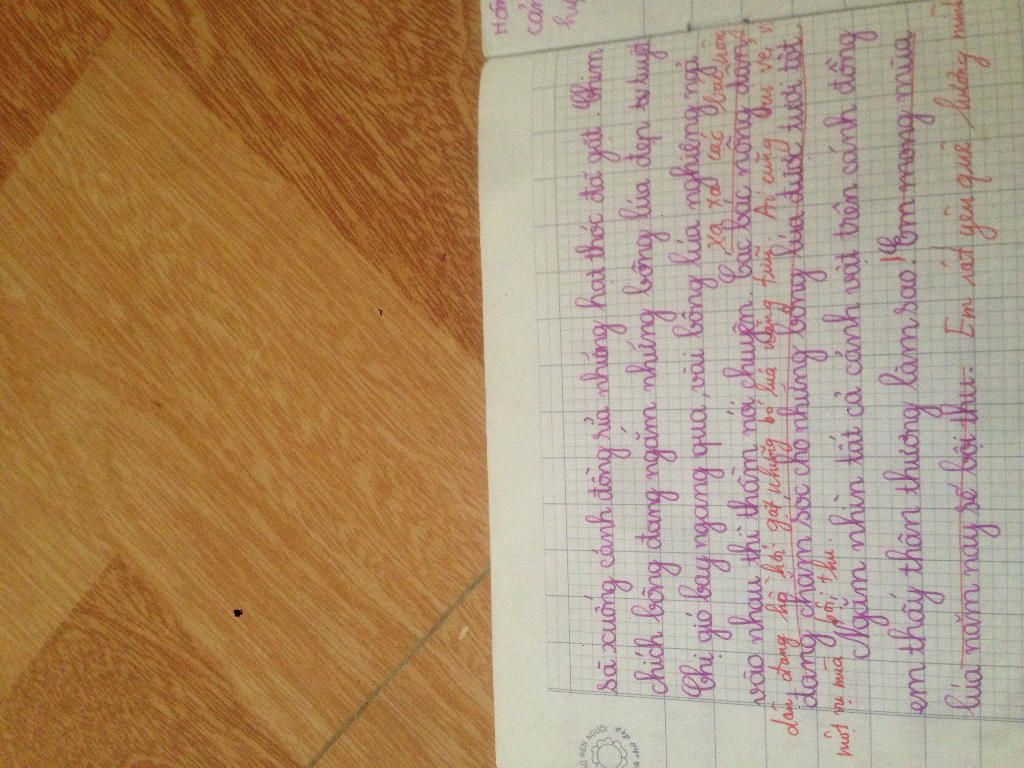 sà xuống cánh đồng rỉa những hạt thóc đã gặt. Chim
chích bông đang ngắm những bông lúa đẹp tuyệt
Chị gió bay ngang qua, vài bông lúa nghiêng ngả
vào nhau thì thầm nói chuyện. Các bác nông dân
Xa xa các bác nông
dân đang hối hả gặt những bó lúa nặng trĩu. Ai cũng vui vẻ vì
đang chăm sóc cho những bông lúa được tươi tốt.
một vụ mùa bội thu.
Ngắm nhìn tất cả cảnh vật trên cánh đồng
em thấy thân thương làm sao! Em mong mùa
lúa năm nay sẽ bội thu. Em rất yêu quê hương mình